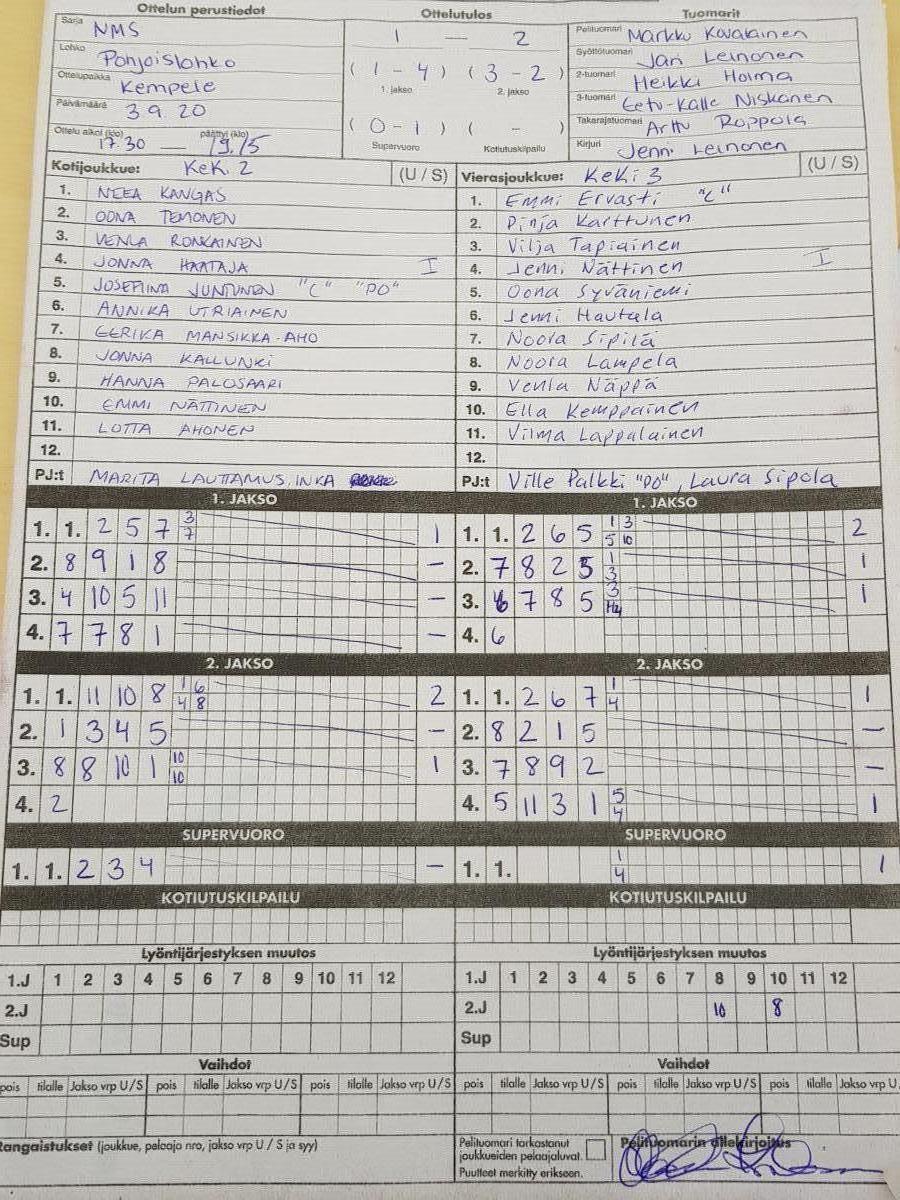 Ottelun perustiedot Ottelutulos Tuomarit
Sarja NMS 1 — 2 Pelituomari Markku Kovalainen
Lohko Pohjoislohko (1 - 4) (3 - 2) Syöttötuomari Jari Leinonen
Ottelupaikka Kempele 1. jakso 2. jakso 2-tuomari Heikki Holma
Päivämäärä 3 9. 20 3-tuomari Eetu-Kalle Niskanen
Ottelu alkoi (klo) 17.30 — päättyi (klo) 19.15 (0 - 1) ( - ) Takarajatuomari Arttu Roppola
Supervuoro Kotiutuskilpailu Kirjuri Jenni Leinonen
Kotijoukkue: KeKi 2 (U / S) Vierasjoukkue: KeKi 3 (U / S)
1. NEEA KANGAS 1. Emmi Ervasti "C"
2. OONA TEMONEN 2. Pinja Karttunen
3. VENLA RONKAINEN 3. Vilja Tapiainen
4. JONNA HAATAJA I 4. Jenni Nättinen I
5. JOSEFIINA JUNTUNEN "C" "PO" 5. Oona Syväniemi
6. ANNIKA UTRIAINEN 6. Jenni Hautala
7. EERIKA MANSIKKA-AHO 7. Noora Sipilä
8. JONNA KALLUNKI 8. Noora Lampela
9. HANNA PALOSAARI 9. Venla Näppä
10. EMMI NÄTTINEN 10. Ella Kemppainen
11. LOTTA AHONEN 11. Vilma Lappalainen
12. 12.
PJ:t MARITA LAUTTAMUS, INKA PJ:t Ville Palkki "PO", Laura Sipola
1. JAKSO 1. JAKSO
1. 1. 2 5 7 3 7 1 1. 1. 2 6 5 1 5 3 10 2
2. 8 9 1 8 — 2. 7 8 2 3 1 3 1
3. 4 10 5 11 — 3. 6 7 8 5 3 1
4. 7 7 8 1 — 4. 6
2. JAKSO 2. JAKSO
1. 1. 11 10 8 1 4 6 8 2 1. 1. 2 6 7 1 4 1
2. 1 3 4 5 — 2. 8 2 1 5 —
3. 8 8 10 1 10 10 1 3. 7 8 9 2 —
4. 2 4. 5 11 3 1 5 4 1
SUPERVUORO SUPERVUORO
1. 1. 2 3 4 — 1. 1. 1 4 1
KOTIUTUSKILPAILU KOTIUTUSKILPAILU
Lyöntijärjestyksen muutos Lyöntijärjestyksen muutos
1.J 1 2 3 4 5 6 7 8 9 10 11 12 1.J 1 2 3 4 5 6 7 8 9 10 11 12
2.J 2.J 10 8
Sup Sup
Vaihdot Vaihdot
pois tilalle Jakso vrp U/S pois tilalle Jakso vrp U/S pois tilalle Jakso vrp U/S pois tilalle Jakso vrp U/S pois tilalle Jakso vrp U/S pois tilalle Jakso vrp U/
Rangaistukset (joukkue, pelaaja nro, jakso vrp U / S ja syy) Pelituomari tarkastanut Pelituomarin allekirjoitus
joukkueiden pelaajaluvat.
Puutteet merkitty erikseen.